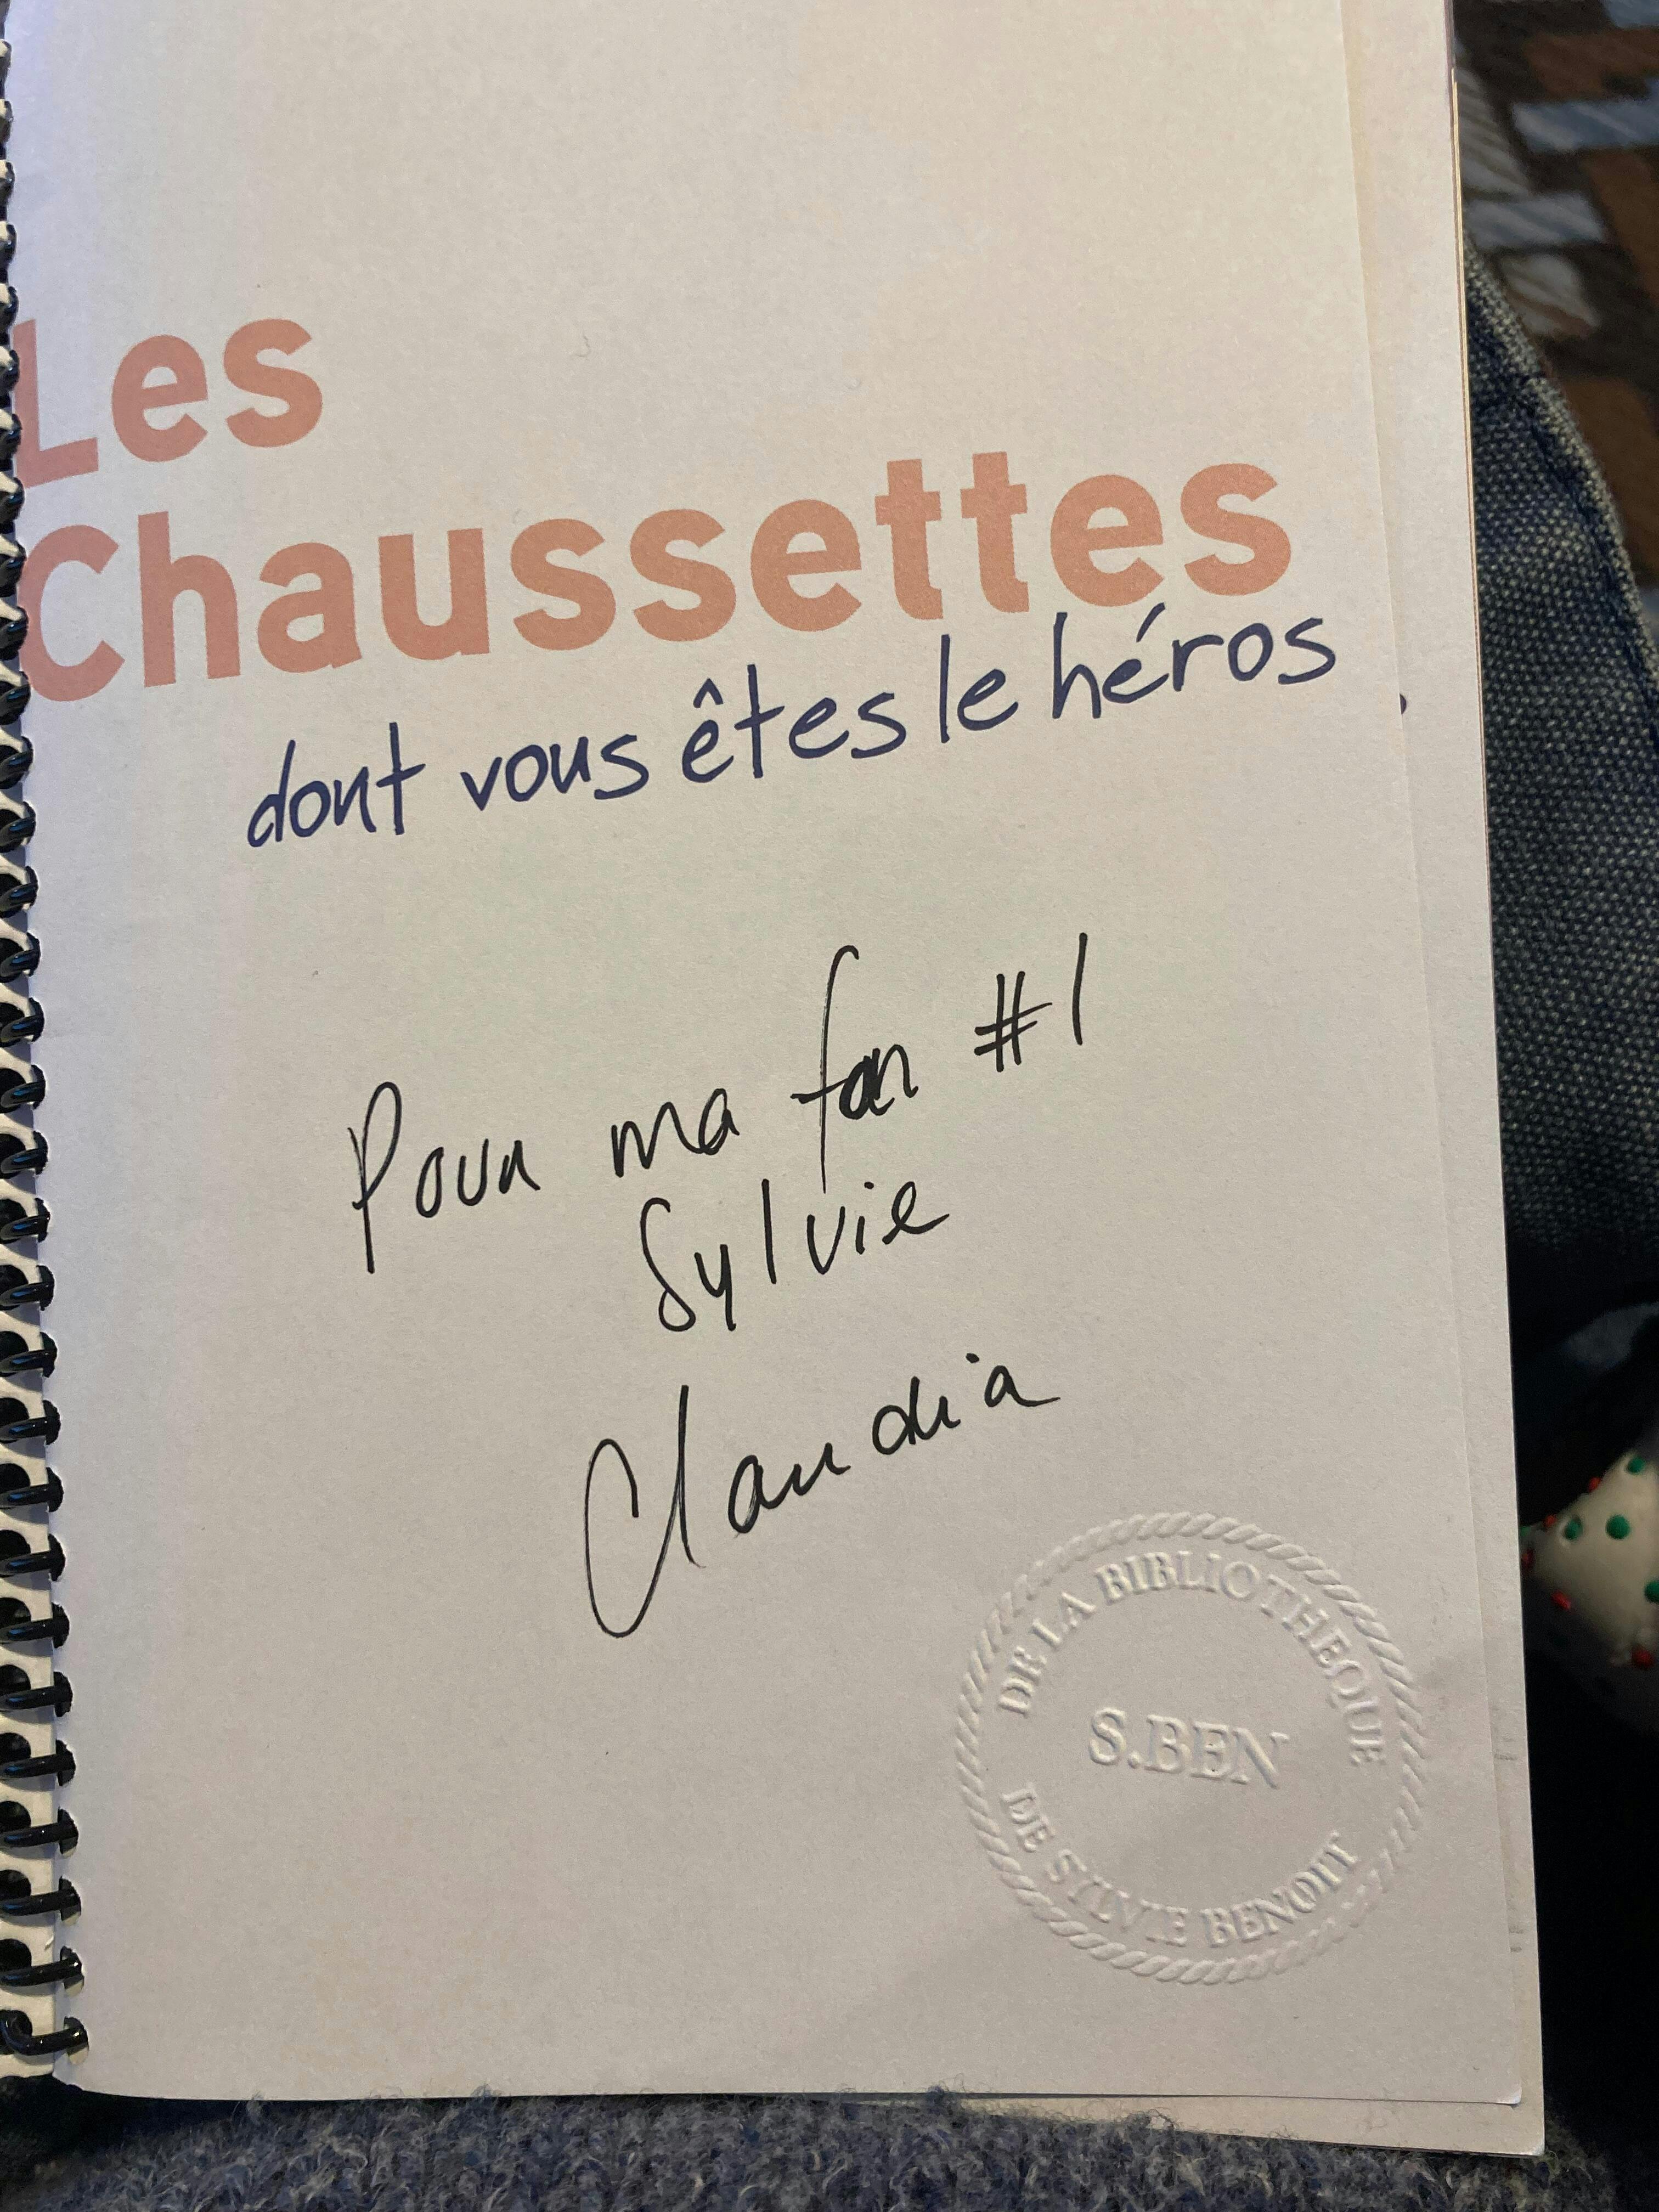 Les
Chaussettes
dont vous êtes le héros
Pour ma fan #1
Sylvie
Claudia
DE LA BIBLIOTHEQUE
S.BEN
DE SYLVIE BENOIT